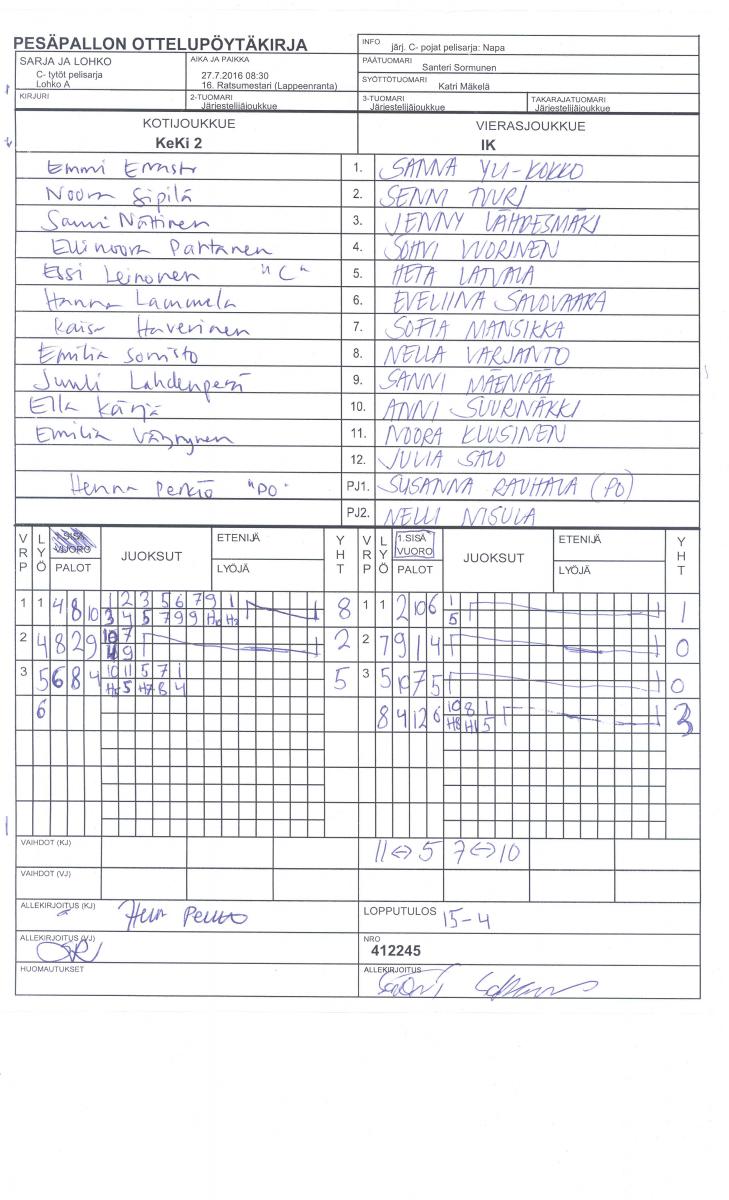 PESÄPALLON OTTELUPÖYTÄKIRJA
INFO järj. C- pojat pelisarja: Napa
SARJA JA LOHKO
C- tytöt pelisarja
Lohko A
AIKA JA PAIKKA
27.7.2016 08:30
16. Ratsumestari (Lappeenranta)
PÄÄTUOMARI Santeri Sormunen
SYÖTTÖTUOMARI Katri Mäkelä
KIRJURI
2-TUOMARI Järjestelijäjoukkue
3-TUOMARI Järjestelijäjoukkue
TAKARAJATUOMARI Järjestelijäjoukkue
KOTIJOUKKUE VIERASJOUKKUE
KeKi 2 IK
Emmi 1. SANNA YLI-KOKKO
Noora Sipilä 2. SENNI TUURI
Sanni Nättinen 3. JENNY LÄHDESMÄKI
Ellinoora Partanen 4. SOHVI VUORINEN
Essi Leinonen "C" 5. HETA LATVALA
Hanna Lammela 6. EVELIINA SALOVAARA
Kaisa Haverinen 7. SOFIA MANSIKKA
Emilia 8. NELLA VARJANTO
Juuli Lahdenperä 9. SANNI MÄENPÄÄ
Ella Kärjä 10. ANNI SUURINÄKKI
Emilia Väyrynen 11. NOORA KUUSINEN
12. JULIA SALO
Henna Perkiö "PO" PJ1. SUSANNA RAUHALA (PO)
PJ2. NELLI NISULA
VRP LYÖ 1.SISÄ VUORO PALOT JUOKSUT ETENIJÄ LYÖJÄ YHT VRP LYÖ 1.SISÄ VUORO PALOT JUOKSUT ETENIJÄ LYÖJÄ YHT
1 1 4 8 10 1 2 3 5 6 7 9 1 8 1 1 2 10 6 1 1
3 4 5 7 9 9 5
2 4 8 2 9 10 7 2 2 7 9 1 4 0
4 9
3 5 6 8 4 10 11 5 7 1 5 3 5 10 7 5 0
5 H7 8 4
6 8 4 12 6 10 8 1 3
H8 H1 5
VAIHDOT (KJ) 11<->5 7<->10
VAIHDOT (VJ)
ALLEKIRJOITUS (KJ)
LOPPUTULOS 15-4
ALLEKIRJOITUS (VJ)
NRO
412245
HUOMAUTUKSET
ALLEKIRJOITUS